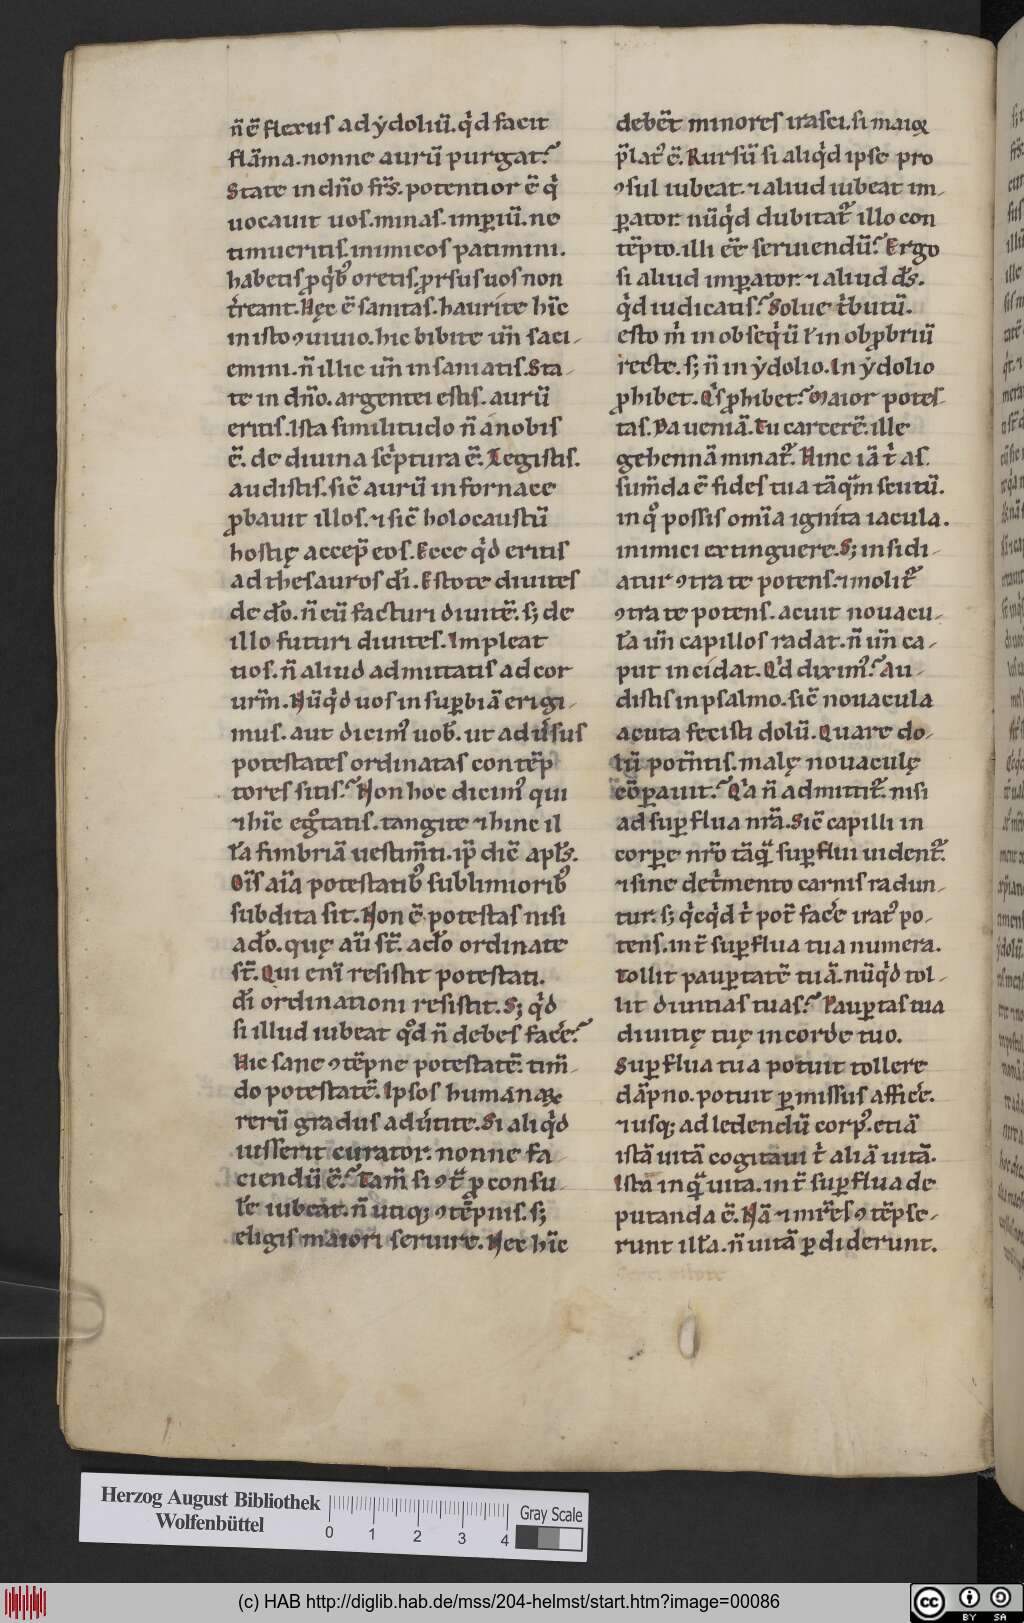 n̄ ē flexus ad ẏdoliū. qͥd facit
flāma. nonne aurū purgat?
State in dn̄o frs̄. potentior ē qͥ
uocauit uos. minas. imꝑiū. ne
timueritis. inimicos patimini.
habetis ꝓ qͥbꝰ oretis. ꝓrsus uos non
tͬreant. Hęc ē sanitas. haurite hīc
in isto ꝯuiuio. hic bibite un̄ saci-
emini. n̄ illic un̄ insaniatis. Sta-
te in dn̄o. argentei estis. aurū
eritis. Ista similitudo n̄ a nobis
ē. de diuina scͥptura ē. Legistis.
audistis. sic̄ aurū in fornace
ꝓbauit illos. ⁊ sic̄ holocaustū
hostię accep̄ eos. Ecce qͥd eritis
ad thesauros dī. Estote diuites
de do̅. n̄ cū facturi diuitē. sꝫ de
illo futuri diuites. Impleat
uos. n̄ aliud admittatis ad cor
urm̄. Nūqͥd uos in suꝑbiā erigi-
mus. aut dicimꝰ uob̄. ut aduͥsus
potestates ordinatas contēp
tores sitis? Non hoc dicimꝰ qui
⁊ hīc egͦtatis. tangite ⁊ hinc il
la̅ fimbriā uestim̄ti. ip̄ dic̄ apls̄.
Oīs aīa potestatibꝰ sublimioribꝰ
subdita sit. Non ē potestas nisi
a do̅. quę aū st̄. a do̅ ordinate
st̄. Qui enī resistit potestati.
dī ordinationi resistit. Sꝫ qͥd
si illud iubeat qͦd n̄ debes face̅?
Hic sane ꝯtēpne potestatē. tim̄-
do potestatē. Ipsos humanaꝝ
rerū gradus aduͥtite. Si aliqͥd
iusserit curator. nonne fa-
ciendū ē? Tam̄ si ꝯt̄ ꝓconsu-
le̅ iubeat. n̄ utiqꝫ ꝯtēpnis. sꝫ
eligis maiori seruire. Nec hīc
debet̄ minores irasci. si maioꝝ
p̄latꝰ ē. Rursū si aliqͥd ipse pro
ꝯsul iubeat. ⁊ aliud iubeat im-
ꝑator. nūqͥd dubitat̄ illo con
tēpto. illi ēe̅ seruiendū? Ergo
si aliud imꝑator. ⁊ aliud ds̄.
qͥd iudicatis? Solue tͥbutū.
esto mͥ in obseqͥū l̄ in obꝓbriū
recte. sꝫ n̄ in ẏdolio. In ẏdolio
ꝓhibet. Qͥs ꝓhibet? Maior potes-
tas. Da ueniā. Tu carcerē. ille
gehennā minat̄. Hinc iā tͥ as
sum̄da ē fides tua tāqͣm scutū.
in qͦ possis omīa ignita iacula.
inimici extinguere. Sꝫ insidi-
atur ꝯtra te potens. ⁊ molit̄
ꝯtra te potens. acuit nouacu-
la̅ un̄ capillos radat. n̄ un̄ ca-
put incidat. Qͥd diximꝰ? Au-
distis in psalmo. sic̄ nouacula
acuta fecisti dolū. Quare do-
lū pot̄ntis. malę nouaculę
cōparauit? Qͥa n̄ admittit̄. nisi
ad suꝑflua nrā. Sic̄ capilli in
corꝑe nro̅ tāqͣ suꝑflui uident̄.
⁊ sine det̄mento carnis radun-
tur. sꝫ qͥcqͥd tͥ pot̄ face̅ iratꝰ po-
tens. int̄ suꝑflua tua numera.
tollit pauꝑtatē tuā. nūqͥd tol-
lit diuitias tuas? Pauꝑtas tua
diuitię tuę in corde tuo.
Suꝑflua tua potuit tollere
dāpno. potuit ꝑmissus affice̅.
⁊ usqꝫ ad ledendū corpꝰ. etiā
istā uitā cogitaui tͥ aliā uitā.
Ista inqͣ uita. int̄ suꝑflua de
putanda ē. Nā ⁊ mr̄es ꝯtēpse-
runt illa̅. n̄ uitā ꝑdiderunt.
Herzog August Bibliothek
Wolfenbüttel
0 1 2 3 4
Gray Scale
(c) HAB http://diglib.hab.de/mss/204-helmst/start.htm?image=00086
cc BY SA